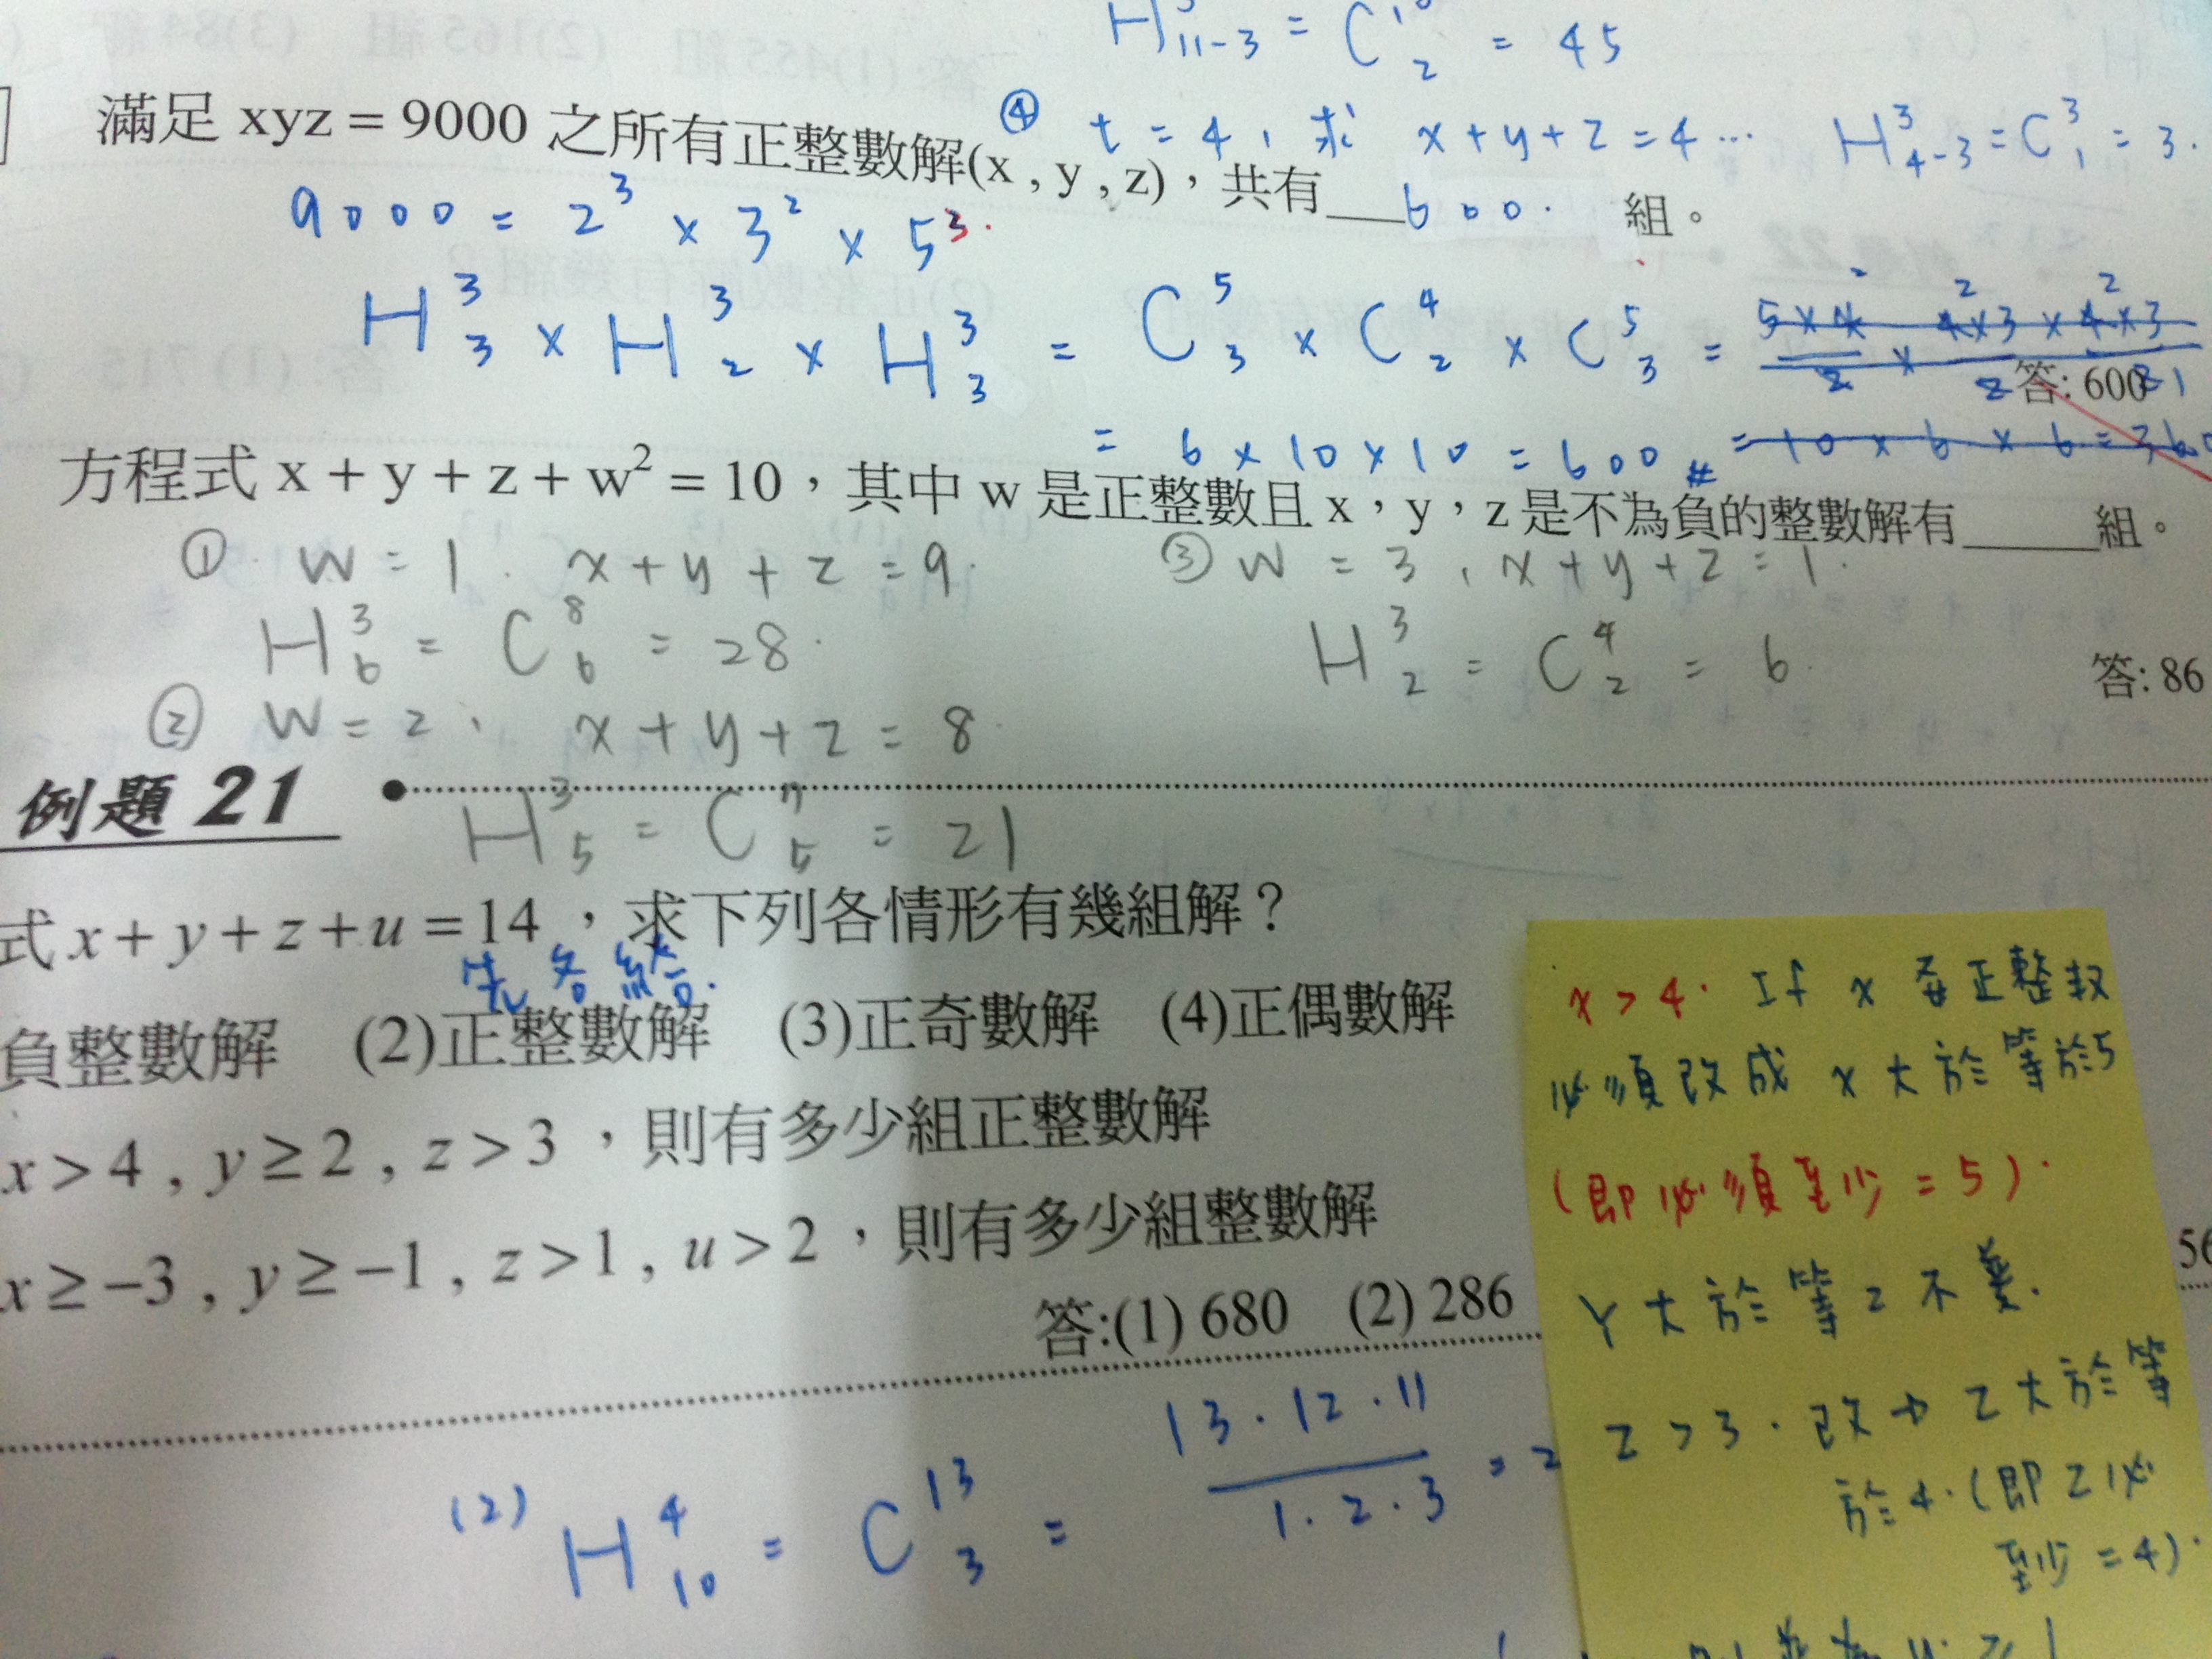 H³₁₁₋₃ = C¹⁰₂ = 45
④ t = 4, 求 x+y+z=4... H³₄₋₃ = C³₁ = 3.
滿足 xyz = 9000 之所有正整數解(x , y , z)，共有___600. 組。
9000 = 2³ × 3² × 5³.
H³₃ × H³₂ × H³₃ = C⁵₃ × C⁴₂ × C⁵₃ =
答: 600
= 6 × 10 × 10 = 600 # = 10 × 6 × 6 = 360
方程式 x + y + z + w² = 10，其中 w 是正整數且 x，y，z 是不為負的整數解有_____組。
① w = 1. x+y+z = 9.
③ w = 3, x+y+z = 1.
H³₆ = C⁸₆ = 28.
H³₂ = C⁴₂ = 6
答: 86
② w = 2, x+y+z = 8
例題 21
H³₅ = C⁷₅ = 21
式 x + y + z + u = 14，求下列各情形有幾組解？
先各給.
負整數解 (2)正整數解 (3)正奇數解 (4)正偶數解
x > 4 , y ≥ 2 , z > 3 ，則有多少組正整數解
x ≥ −3 , y ≥ −1 , z > 1 , u > 2 ，則有多少組整數解
56
答:(1) 680 (2) 286
(2) H⁴₁₀ = C¹³₃ = 13·12·11 / 1·2·3 = 2
x > 4. If x 為正整数
必須改成 x 大於等於5
(即必須至少 = 5).
Y 大於等 2 不變.
Z > 3. 改为 Z 大於等
於 4. (即 Z 必
至少 = 4).